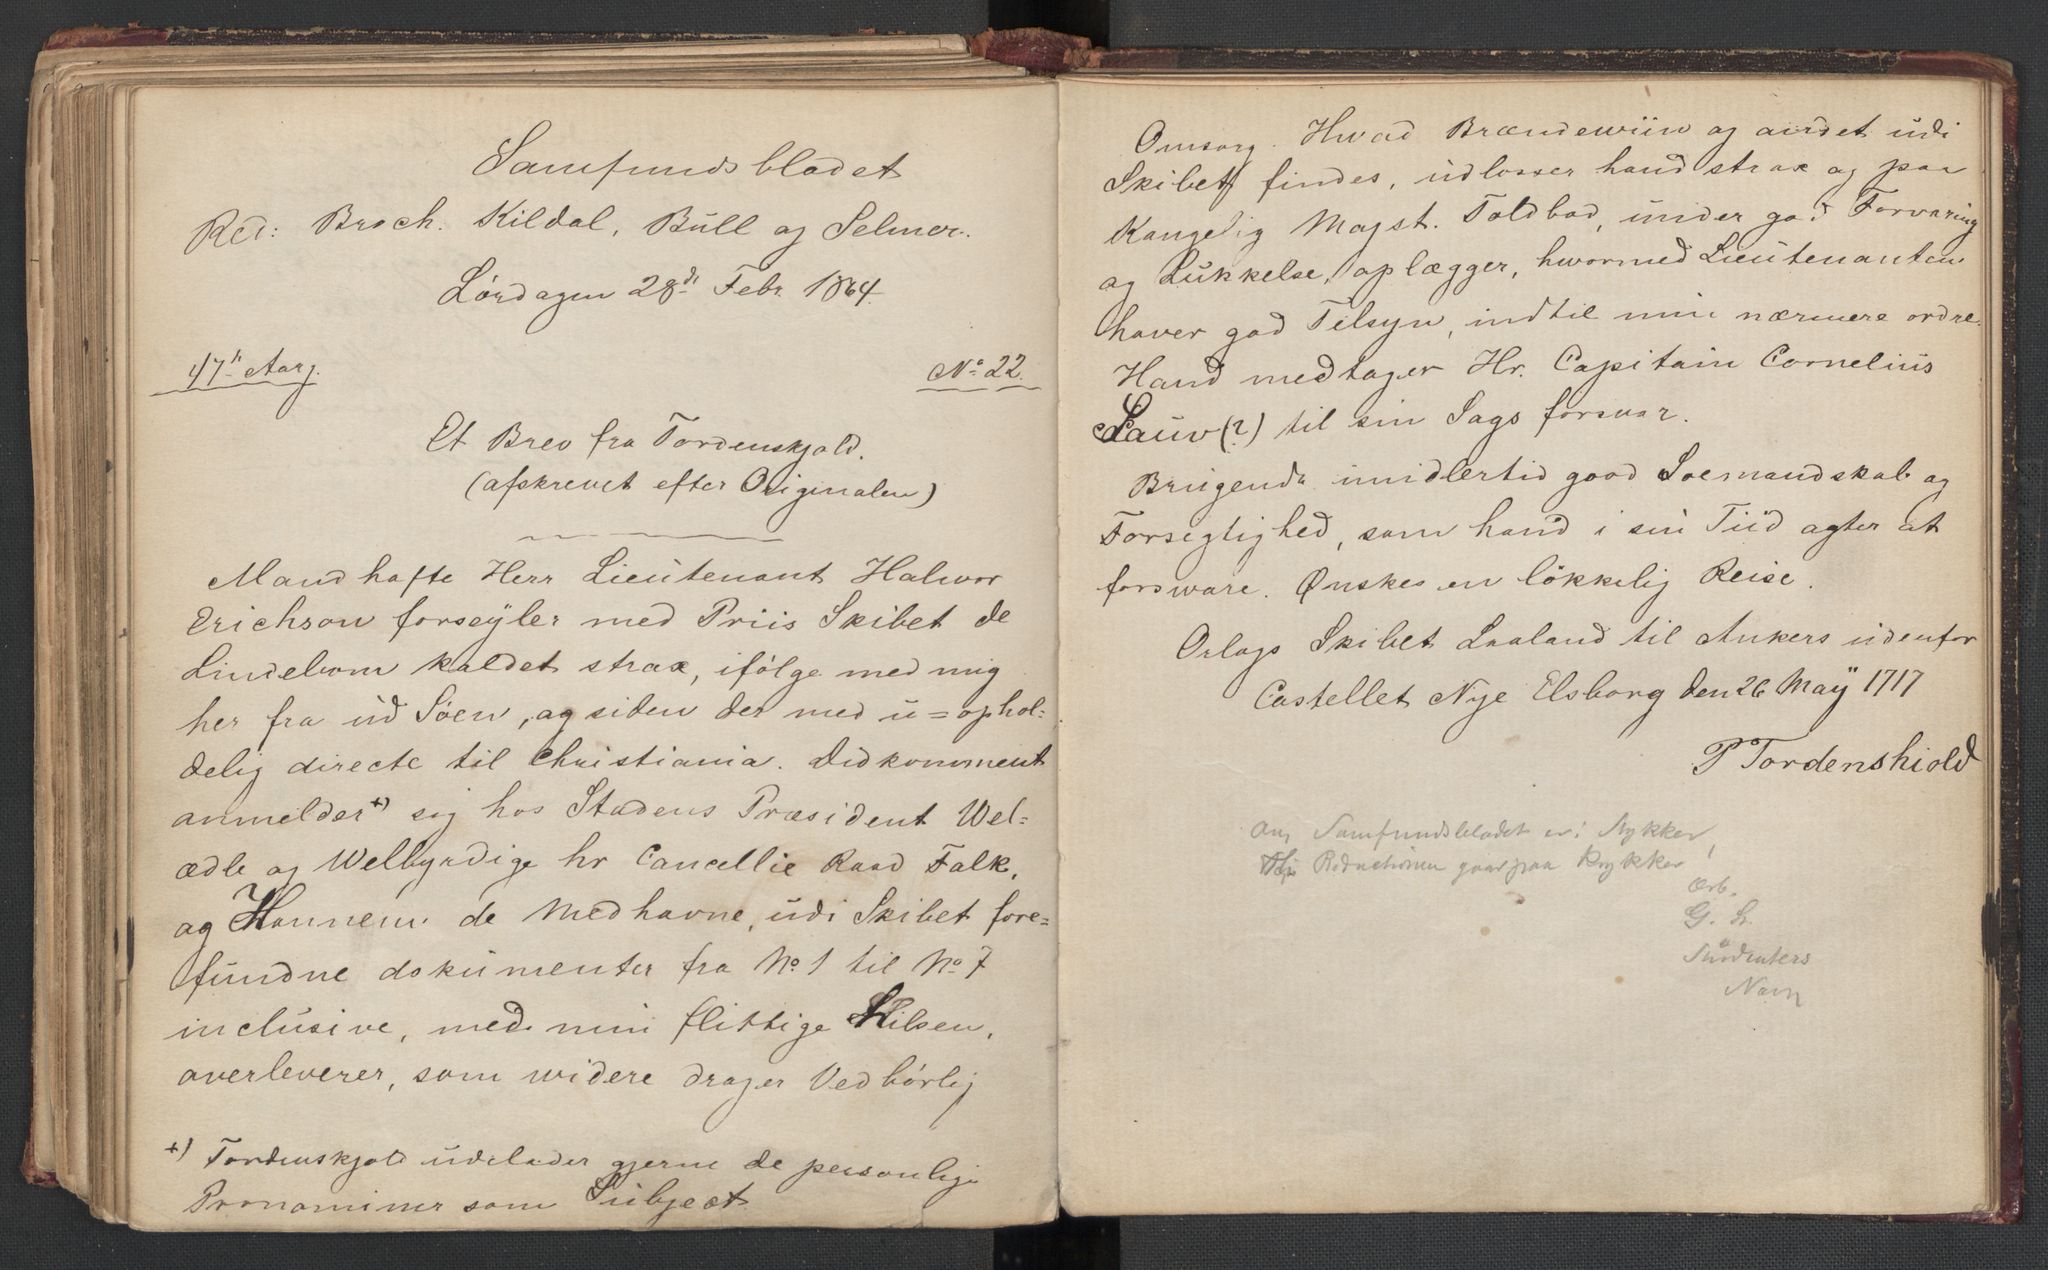 Samfundsbladet
Red: Broch. Kildal, Bull og Selmer.
Lørdagen 28de Febr. 1864.
47de Aarg.
No. 22.
Et Brev fra Tordenskjold.
(afskrevet efter Originalen)
Mandhafte Herr Lieutenant Halwor
Erichson forseÿler med Priis Skibet de
Lindebom kaldet strax, ifölge med mig
her fra ud Söen, og siden der med u=ophol=
delig directe til Christiania. Didkomment
anmelder +) sig hos Stadens Præsident Wel=
ædle og Welbyrdige hr Cancellie Raad Falk,
og Hannem de Medhavne, udi Skibet fore=
fundne dokumenter fra No. 1 til No. 7
inclusive, med min flittige Hilsen,
overleverer, som widere drager Vedbörlig
+) Tordenskjold udelader gjerne de personlige
Pronominer som Subject
Omsorg. Hwad Brændewiin og andet udi
Skibet findes, udlosser hand strax og paa
Kongelig Mayst. Toldbod, under god Forvaring
og Lukkelse, oplægger, hwormed Lieutenanten
haver god Tilsyn, indtil min nærmere ordre.
Hand medtager Hr. Capitain Cornelius
Lauw (?) til sin Sags forsvar.
Brugende imidlertid good Soemandskab og
Forsegtighed, som hand i sin Tiid agter at
forsware. Ønskes en lökkelig Reise.
Orlogs Skibet Laaland til Ankers udenfor
Castellet Nye Elsborg den 26 Maÿ 1717
P Tordenskiold
Samfundsbladet er i Stykker,
Redactionen gaar paa Krykker
ærb.
G. S.
Studenters
Navn